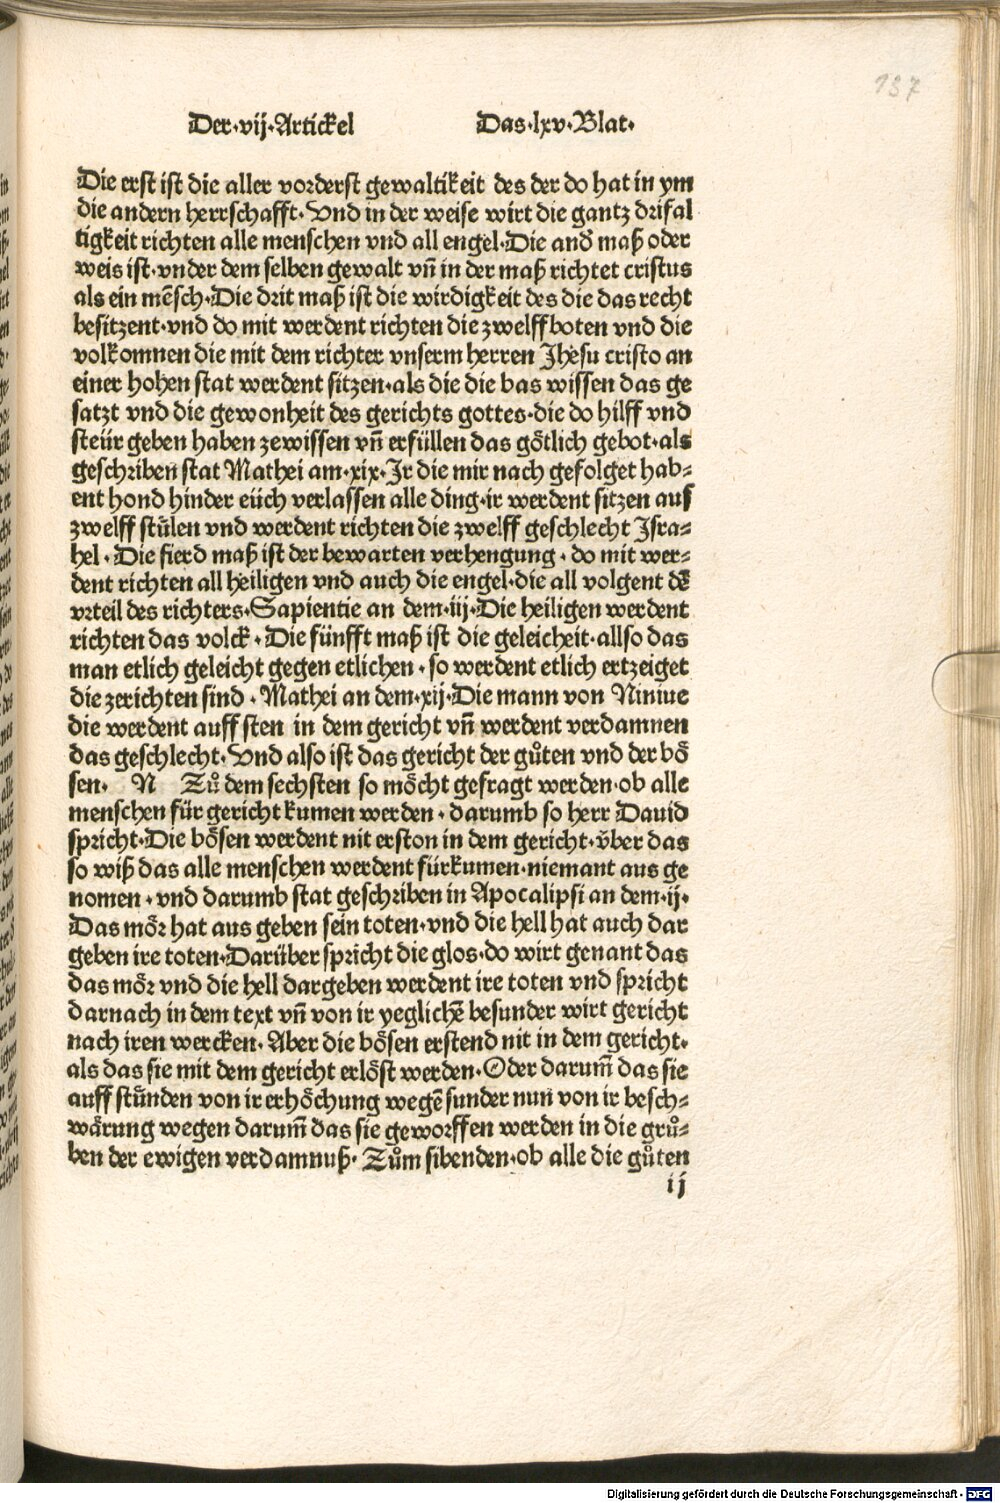 137
Der·vij·Artickel Das·lxv·Blat·
Die erst ist die aller vorderst gewaltikeit des der do hat in ym
die andern herrschafft·Vnd in der weise wirt die gantz drifal
tigkeit richten alle menschen vnd all engel·Die and̄ maß oder
weis ist·vnder dem selben gewalt vn̄ in der maß richtet cristus
als ein mēsch·Die drit maß ist die wirdigkeit des die das recht
besitzent·vnd do mit werdent richten die zwelffboten vnd die
volkomnen die mit dem richter vnserm herren Jhesu cristo an
einer hohen stat werdent sitzen·als die die bas wissen das ge
satzt vnd die gewonheit des gerichts gottes·die do hilff vnd
steür geben haben zewissen vn̄ erfüllen das götlich gebot·als
geschriben stat Mathei am·xix·Ir die mir nach gefolget hab⸗
ent hond hinder eüch verlassen alle ding·ir werdent sitzen auf
zwelff stůlen vnd werdent richten die zwelff geschlecht Isra⸗
hel·Die fierd maß ist der bewarten verhengung·do mit wer⸗
dent richten all heiligen vnd auch die engel·die all volgent dē
vrteil des richters·Sapientie an dem·iij·Die heiligen werdent
richten das volck·Die fünfft maß ist die geleicheit·allso das
man etlich geleicht gegen etlichen·so werdent etlich ertzeiget
die zerichten sind·Mathei an dem·xij·Die mann von Niniue
die werdent auff sten in dem gericht vn̄ werdent verdamnen
das geschlecht·Vnd also ist das gericht der gůten vnd der bö
sen· N Zů dem sechsten so möcht gefragt werden·ob alle
menschen für gericht kumen werden·darumb so herr Dauid
spricht·Die bösen werdent nit erston in dem gericht·v̈ber das
so wiß das alle menschen werdent fürkumen·niemant aus ge
nomen·vnd darumb stat geschriben in Apocalipsi an dem·ij·
Das mör hat aus geben sein toten·vnd die hell hat auch dar
geben ire toten·Darüber spricht die glos·do wirt genant das
das mör vnd die hell dargeben werdent ire toten vnd spricht
darnach in dem text vn̄ von ir yeglichē besunder wirt gericht
nach iren wercken·Aber die bösen erstend nit in dem gericht·
als das sie mit dem gericht erlöst werden·Oder darum̄ das sie
auff stünden von ir erhöchung wegē sunder nun von ir besch⸗
wärung wegen darum̄ das sie geworffen werden in die grů⸗
ben der ewigen verdamnuß·Zům sibenden·ob alle die gůten
ij
Digitalisierung gefördert durch die Deutsche Forschungsgemeinschaft - DFG